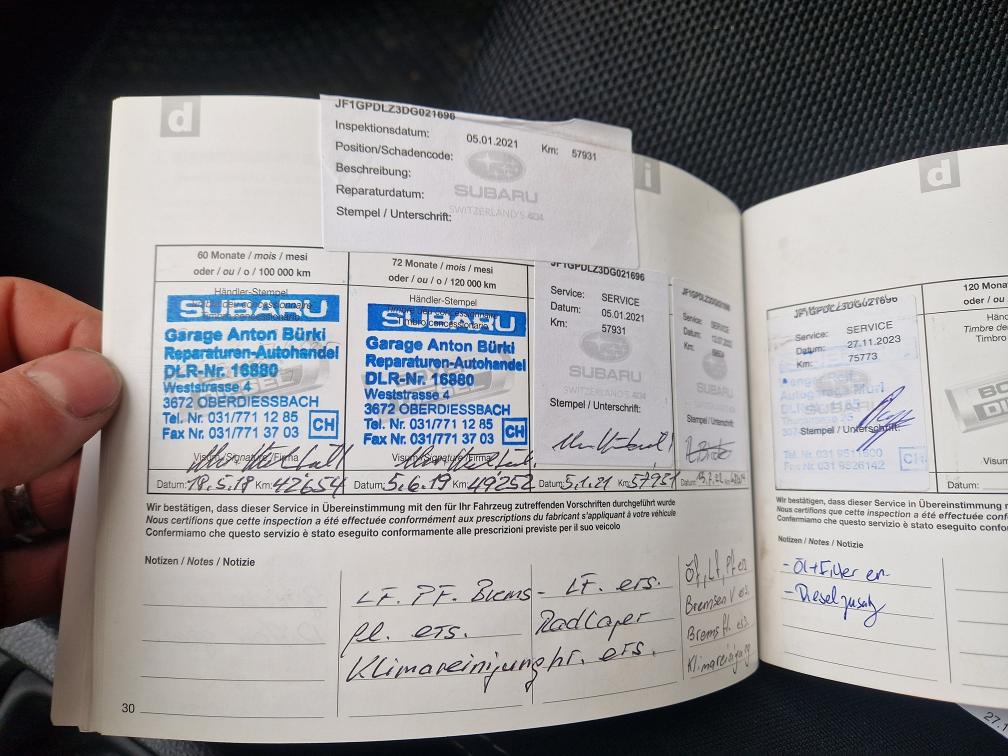 d
JF1GPDLZ3DG021696
Inspektionsdatum: 05.01.2021 Km: 57931
Position/Schadencode:
Beschreibung:
Reparaturdatum:
Stempel / Unterschrift:
SUBARU
SWITZERLAND'S 4x4
i
60 Monate / mois / mesi
oder / ou / o / 100 000 km
Händler-Stempel
Timbre du concessionnaire
Timbro concessionario
SUBARU
Garage Anton Bürki
Reparaturen-Autohandel
DLR-Nr. 16880
Weststrasse 4
3672 OBERDIESSBACH
Tel. Nr. 031/771 12 85
Fax Nr. 031/771 37 03
CH
Visum/Signature/Firma
Datum: 18.5.18 Km: 42654
72 Monate / mois / mesi
oder / ou / o / 120 000 km
Händler-Stempel
Timbre du concessionnaire
Timbro concessionario
SUBARU
Garage Anton Bürki
Reparaturen-Autohandel
DLR-Nr. 16880
Weststrasse 4
3672 OBERDIESSBACH
Tel. Nr. 031/771 12 85
Fax Nr. 031/771 37 03
CH
Visum/Signature/Firma
Datum: 5.6.19 Km: 49252
JF1GPDLZ3DG021696
Service: SERVICE
Datum: 05.01.2021
Km: 57931
SUBARU
SWITZERLAND'S 4x4
Stempel / Unterschrift:
Datum: 5.1.21 Km: 57931
Service: SERVICE
Datum:
Km:
SUBARU
Stempel / Unterschrift:
Datum:
Wir bestätigen, dass dieser Service in Übereinstimmung mit den für Ihr Fahrzeug zutreffenden Vorschriften durchgeführt wurde
Nous certifions que cette inspection a été effectuée conformément aux prescriptions du fabricant s'appliquant à votre véhicule
Confermiamo che questo servizio è stato eseguito conformamente alle prescrizioni previste per il suo veicolo
Notizen / Notes / Notizie
LF. PF. Brems-
fl. ers.
Klimareinigung
LF. ers.
Radlager
hr. ers.
Öf, LF, Pf ers
Bremsen V ers.
Bremsfl. ers.
Klimareinigung
30
d
JF1GPDLZ3DG021696
Service: SERVICE
Datum: 27.11.2023
Km: 75773
SUBARU
Stempel / Unterschrift:
Tel. Nr. 031 9511600
Fax Nr. 031 9526142
CH
Datum:
120 Mona
oder / ou
Timbre de
Timbro
Visum
Datum:
Wir bestätigen, dass dieser Service in Übereinstimmung mit den für Ihr
Nous certifions que cette inspection a été effectuée conf
Confermiamo che questo servizio è stato eseguito confo
Notizen / Notes / Notizie
- Öl+Filter er.
- Dieselzusatz
27.1